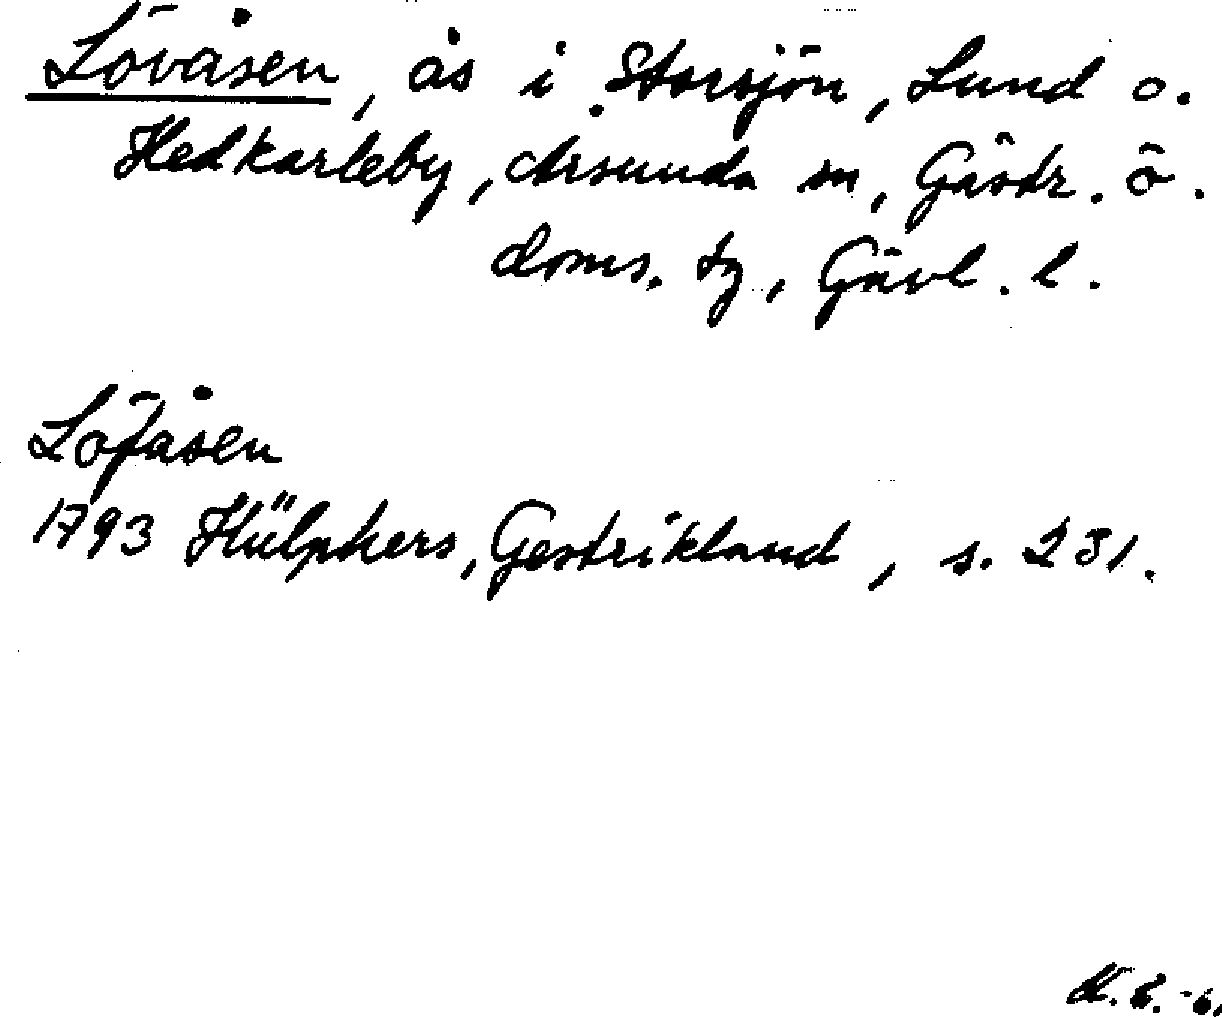 Lövåsen, ås i Storsjön, Lund o.
Hedkarleby, Årsunda sn, Gästr. ö.
doms. tg, Gävl. l.
Löfåsen
1793 Hülphers, Gestrikland, s. 231.